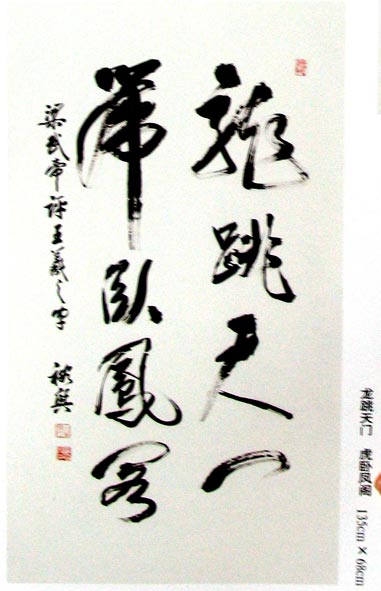 龍跳天门
虎卧鳳阁
梁武帝評王羲之字
龙跳天门 虎卧凤阁 135cm × 68cm